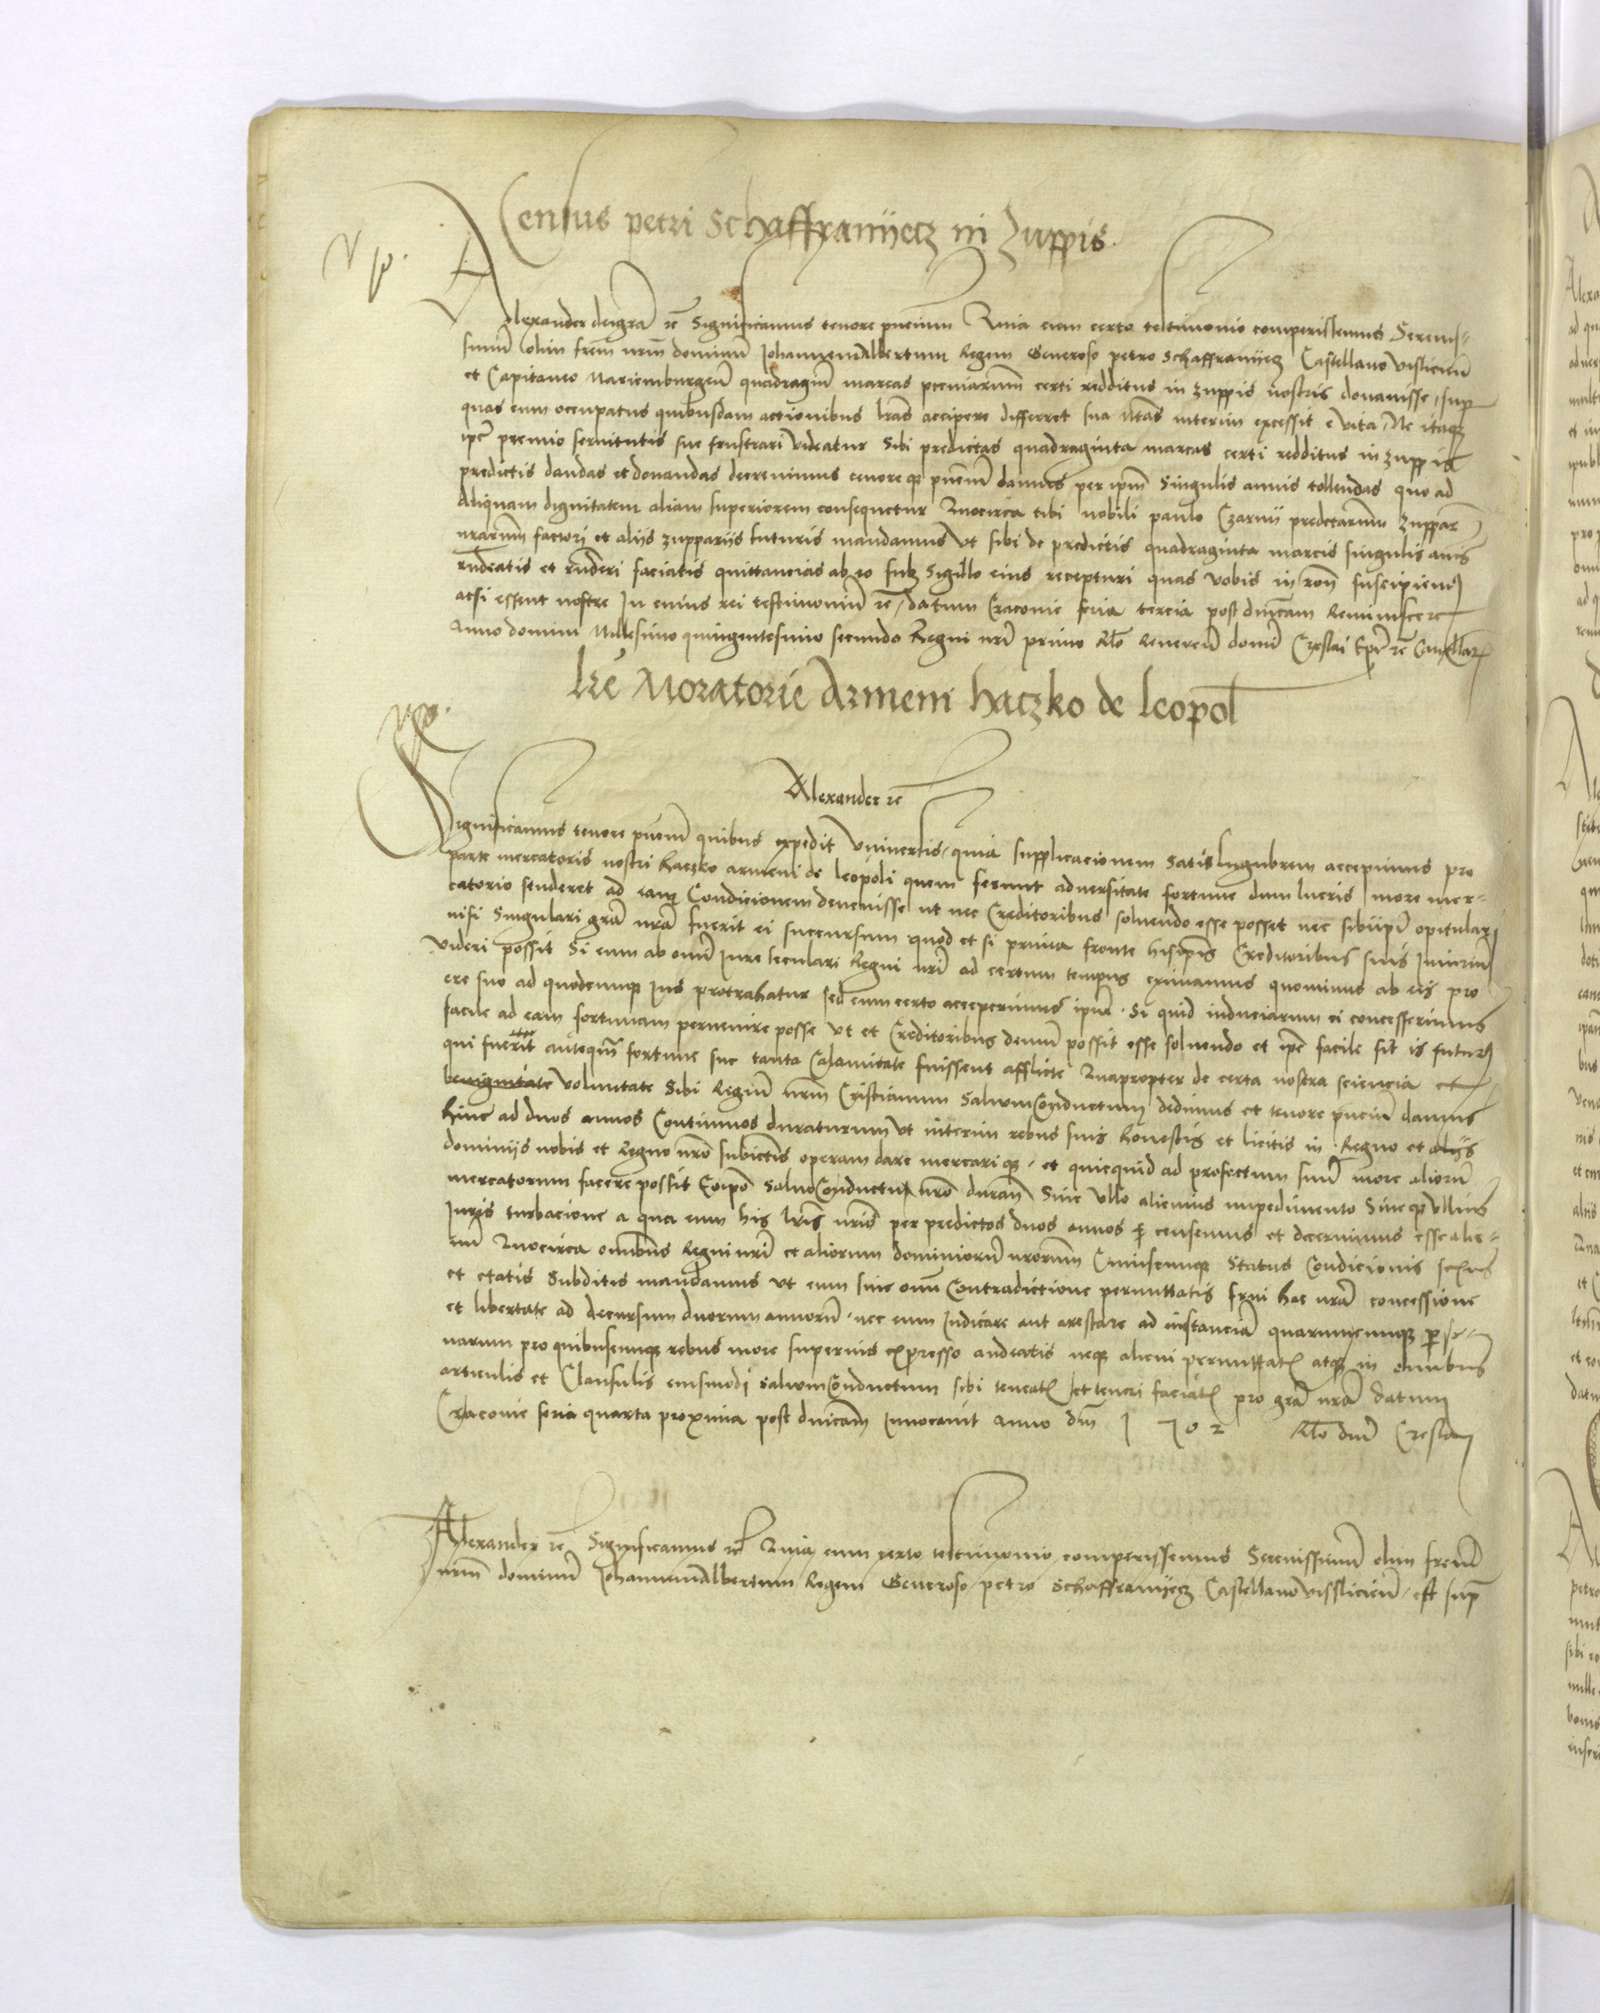 Census petri Schaffranijecz in Zuppis
Alexander dei gra rc Significamus tenore pncium Quia cum certo testimonio comperissemus Serenis-
simu olim frem nrm dominu Johannem Albertum Regem Generoso petro Schaffranijecz Castellano visliciensi
et Capitaneo Mariemburgen quadragin marcas pecuniarum certi redditus in zuppis nostris donauisse, sup
quas cum occupatus quibusdam actionibus lras accipere differret sua Mtas interim excessit e vita, Ne itaq
ipe premio seruitutis sue frustrari videatur Sibi predictas quadraginta marcas certi redditus in zuppis
predictis dandas et donandas decreuimus tenoreq pnciu damus per ipm Singulis annis tollendas quo ad
Aliquam dignitatem aliam superiorem consequetur Quocirca tibi nobili paulo Czarnij predictarum Zuppar
nrarum factori et aliis zuppariis futuris mandamus vt sibi de predictis quadraginta marcis singulis annis
rndeatis et rnderi faciatis quittancias ab eo sub Sigillo eius recepturi quas vobis in ron suscipiemus
acsi essent nostre In cuius rei testimoniu rc, datum Cracouie feria tercia post dnicam Reminiscere
Anno domini Millesimo quingentesimo secundo Regni nri primo Rlo Reueren domi Creslai Epi rc Cancellar
Lre Moratorie Armeni haczko de leopol
Alexander rc
Significamus tenore pnciu quibus expedit Vniuersis, quia supplicacionem satis lugubrem accepimus pro
parte mercatoris nostri haczko armeni de leopoli quem ferunt aduersitate fortune dum lucris more mer-
catorio studeret ad eam Condicionem deuenisse ut nec Creditoribus soluendo esse posset nec sibiipi opitulari
nisi Singulari gra nra fuerit ei succursum quod et si prima fronte hisipis Creditoribus suis Iniurium
videri possit Si eum ab omi Iure seculari Regni nri ad certum tempus eximamus quominus ab eis pro
ere suo ad quodcunq Ius protrahatur sed cum certo acceperimus ipm, Si quid induciarum ei concesserimus
facile ad eam fortunam peruenire posse vt et Creditoribus demu possit esse soluendo et ipe facile sit is futurus
qui fuerit anteq fortune sue tanta Calamitate fuissent afflicte Quapropter de certa nostra sciencia et
benignitate voluntate Sibi Regiu nrm Cristianum Saluum Conductum dedimus et tenore pnciu damus
hinc ad duos annos Continuos duraturum vt interim rebus suis honestis et licitis in Regno et aliis
dominijs nobis et Regno nro subiectis operam dare mercariq, et quicquid ad profectum suu more alioru
mercatorum facere possit Eoipo Saluo Conductu nro duran Sine vllo alicuius impedimento Sineq vllius
Iuris turbacione a qua eum his lris nris per predictos duos annos censemus et decernimus esse alie-
nu Quocirca omibus Regni nri et aliorum dominioru nrorum Cuiuscunq Status Condicionis sexus
et etatis Subditis mandamus vt eum sine omi Contradictione permittatis frui hac nra concessione
et libertate ad decursum duorum annoru, nec eum Iudicare aut arestare ad instancia quarumcunq perso-
narum pro quibuscunq rebus more superius expresso audeatis neq alicui permittatis atq in omibus
articulis et Clausulis eiusmodi saluum Conductum sibi teneatis et teneri faciatis pro gra nra datum
Cracouie feria quarta proxima post dnicam Inuocauit Anno dni 1502 Rlo dni Creslai
Alexander rc Significamus rc Quia cum certo testimonio comperissemus Serenissimu olim frem
nrm dominu Johannem Albertum Regem Generoso petro Schaffranijecz Castellano vissliciensi, est sup